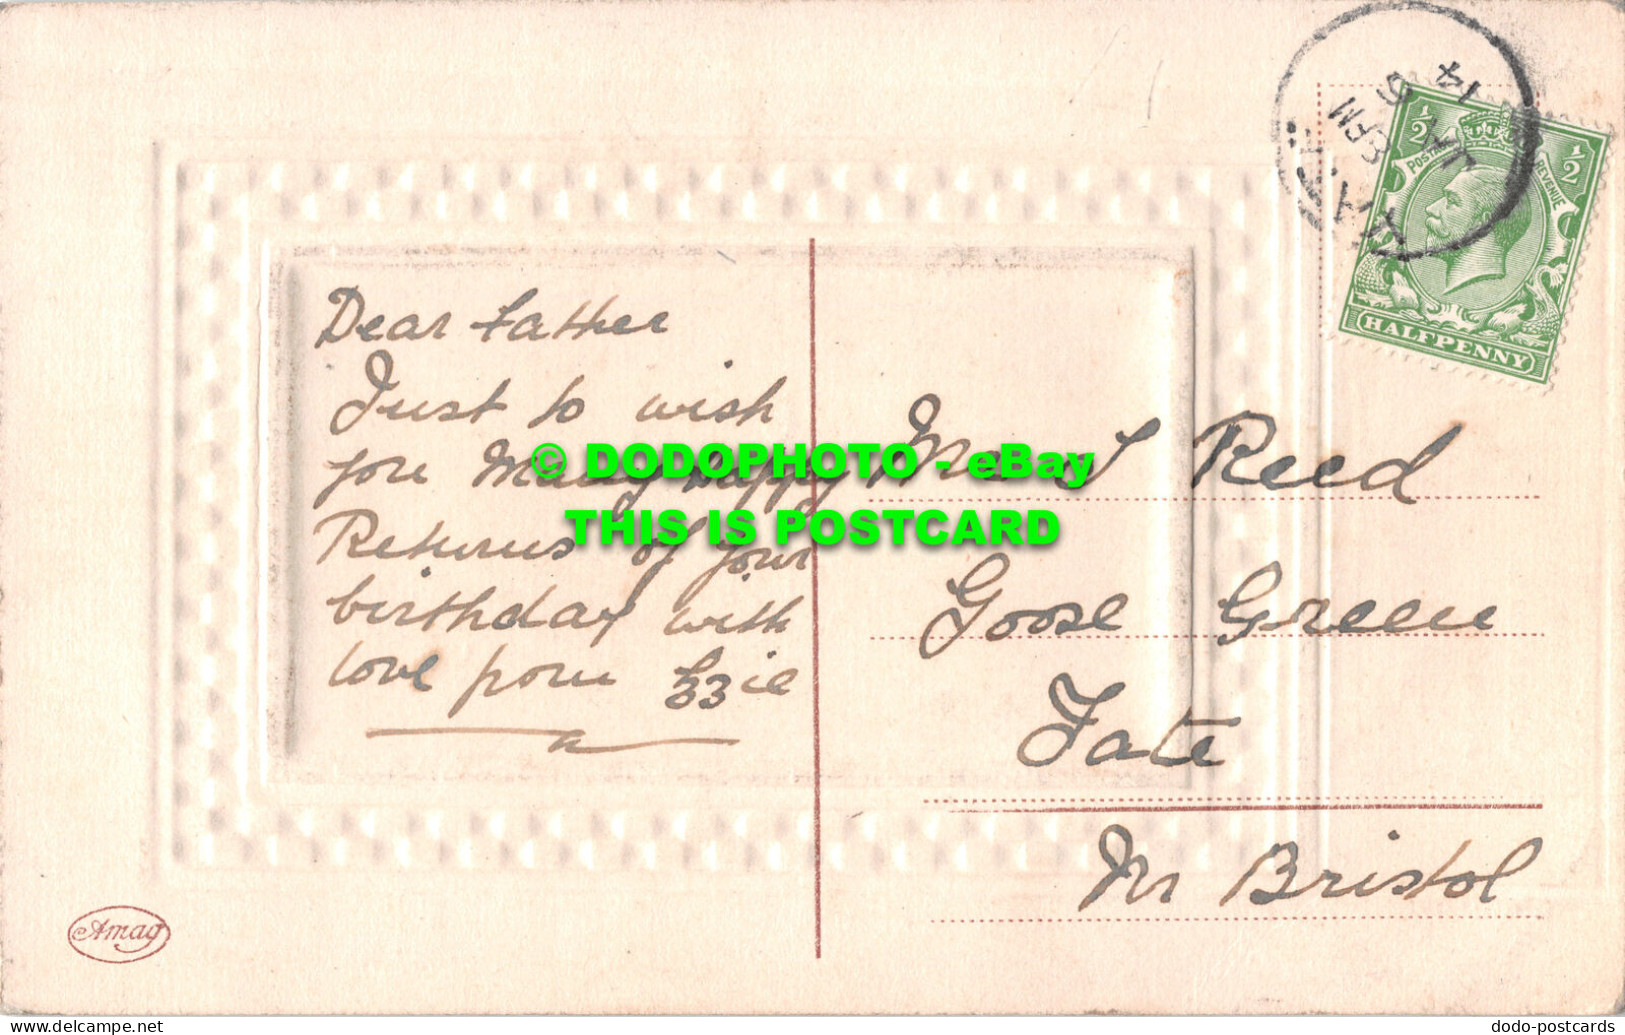 Dear Father
Just to wish
you Many Happy
Returns of your
birthday with
love from Ezzie
© DODOPHOTO - eBay
THIS IS POSTCARD
Reed
Goose Green
Yate
Nr Bristol
14
JA 6
PM
½ ½
POSTAGE REVENUE
HALFPENNY
Amag
www.delcampe.net
dodo-postcards